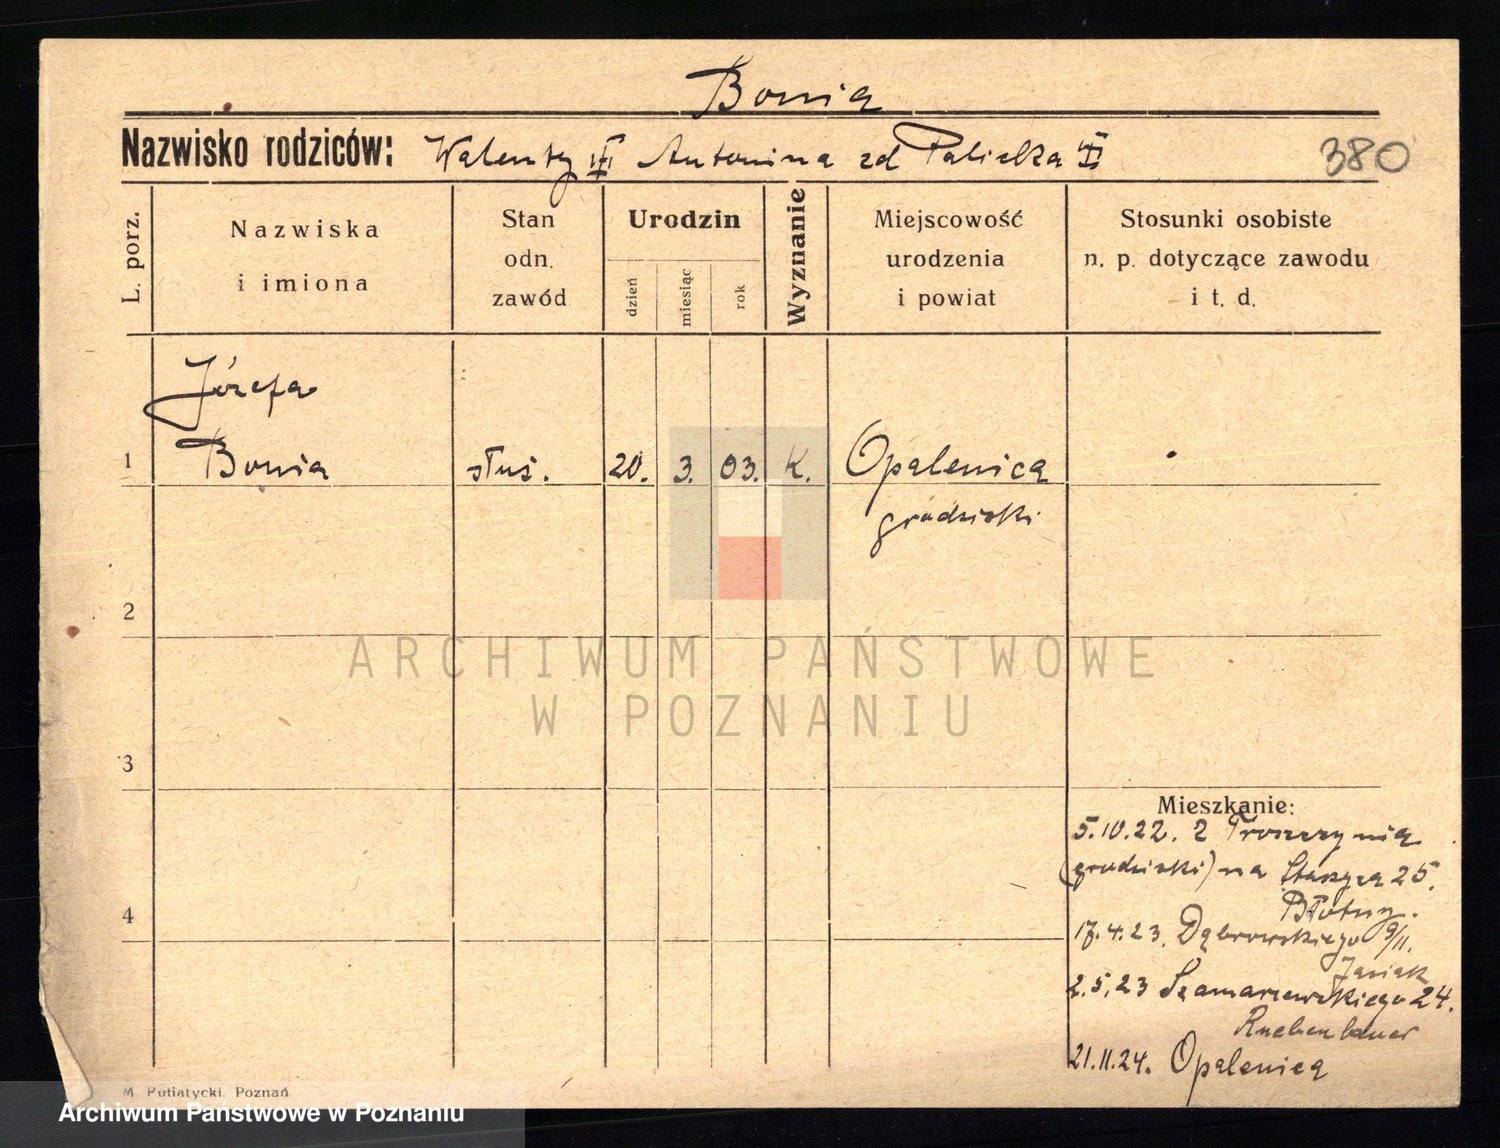 Bonia
Nazwisko rodziców: Walenty Antonina zd
380
L. porz.
Nazwiska
i imiona
Stan
odn.
zawód
Urodzin
dzień
miesiąc
rok
Wyznanie
Miejscowość
urodzenia
i powiat
Stosunki osobiste
n. p. dotyczące zawodu
i t. d.
Józefa
1 Bonia służ. 20. 3. 03. K. Opalenica
grodziski
2
ARCHIWUM PAŃSTWOWE
W POZNANIU
3
Mieszkanie:
5.10.22. z
(grodziski) na Staszyca 25.
4
17.4.23. Dąbrowskiego 9/11.
Jasiak
2.5.23 Szamarzewskiego 24.
21.11.24. Opalenica
M. Putiatycki. Poznań
Archiwum Państwowe w Poznaniu